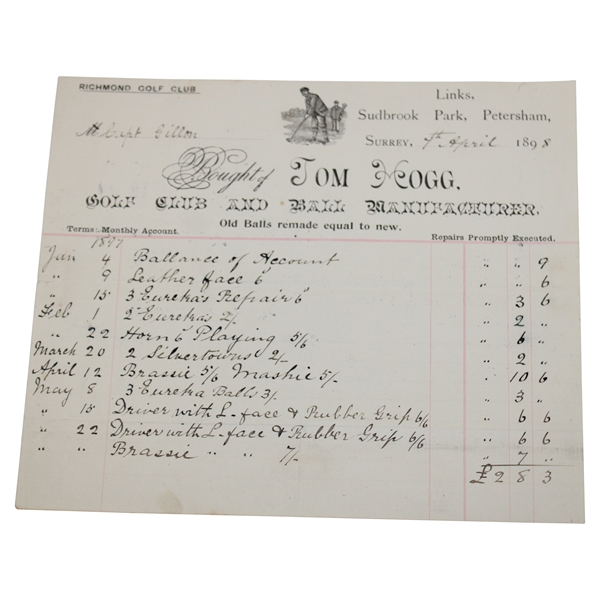 RICHMOND GOLF CLUB
Links,
Sudbrook Park, Petersham,
Surrey, April 1898
Capt Gillon
Bought of TOM HOGG,
GOLF CLUB AND BALL MANUFACTURER.
Old Balls remade equal to new.
Terms: Monthly Account. Repairs Promptly Executed.
1897
Jan 4 Ballance of Account " " 9
" 9 Leather face 6 " " 6
" 15 3 Eureka's Repair 6 " 3 6
Feb 1 2 Eureka's 2/- " 2 "
" 22 Horn 6 Playing 5/6 " 6 "
March 20 2 Silvertowns 2/- " 2 "
April 12 Brassie 5/6 Mashie 5/- " 10 6
May 8 3 Eureka Balls 3/- " 3 "
" 15 Driver with L-face & Rubber Grip 6/6 " 6 6
" 22 Driver with L-face & Rubber Grip 6/6 " 6 6
" " Brassie " " 7/- " 7 "
£2 8 3